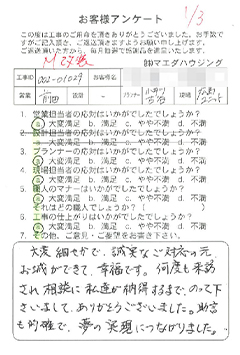 お客様アンケート
1/3
この度は工事のご用命を頂きありがとうございました。お手数で
すがご記入頂き、ご返送頂きますようお願い申し上げます。
㈱マエダハウジング
工事ID
002-01029
お客様名
営業
前田
設計
プランナー
現場
1. 営業担当者の対応はいかがでしたでしょうか?
a. 大変満足 b. 満足 c. やや不満 d. 不満
2. 設計担当者の対応はいかがでしたでしょうか?
a. 大変満足 b. 満足 c. やや不満 d. 不満
3. プランナーの対応はいかがでしたでしょうか?
a. 大変満足 b. 満足 c. やや不満 d. 不満
4. 現場担当者の対応はいかがでしたでしょうか?
a. 大変満足 b. 満足 c. やや不満 d. 不満
5. 職人のマナーはいかがでしたでしょうか?
a. 大変満足 b. 満足 c. やや不満 d. 不満
それはどの職人でしょうか?
6. 工事の仕上がりはいかがでしたでしょうか?
a. 大変満足 b. 満足 c. やや不満 d. 不満
7. その他、ご意見・ご要望をお書き下さい。
大変細やかで、誠実なご対応の元
お城ができて、幸福です。何度も来訪
され相談に私達が納得するまで、のって下
さいまして、ありがとうございました。助言
も的確で、夢の実現につながりました。